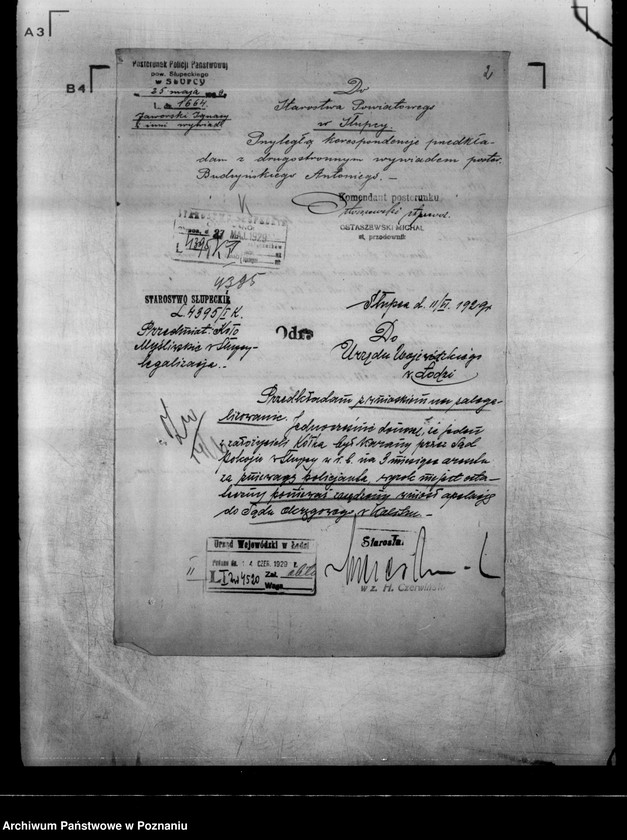 A3
B4
2
Posterunek Policji Państwowej
pow. Słupeckiego
w SŁUPCY
25 maja 1929
L. dz. 1664
Jaworski Ignacy
i inni wywiad
Do
Starostwa Powiatowego
w Słupcy
Przyległą korespondencję przedkła-
dam z drugostronnym wywiadem poster.
Budzyńskiego Antoniego. —
Komendant posterunku
OSTASZEWSKI MICHAŁ
st. przodownik
27 MAJ. 1929
4395
4395
STAROSTWO SŁUPECKIE
L. 4395/I K.
Przedmiot: Koło
Myśliwskie w Słupcy-
legalizacja. -
Odpis
Słupca d. 11/VI. 1929 r.
Do
Urzędu Wojewódzkiego
w Łodzi
Przedkładam z wnioskiem na zalega-
lizowanie. Jednocześnie donoszę, iż jeden
z założycieli Kółka był karany przez Sąd
Pokoju w Słupcy w r. b. na 3 miesiące aresztu
za zniewagę policjanta, wyrok nie jest osta-
teczny ponieważ zasądzony wniósł apelację
do Sądu Okręgowego w Kaliszu. —
Urząd Wojewódzki w Łodzi
14 CZER. 1929 r.
L. I 4520 Zał.
Wago
II
Starosta
w z. M. Czerwiński
Archiwum Państwowe w Poznaniu